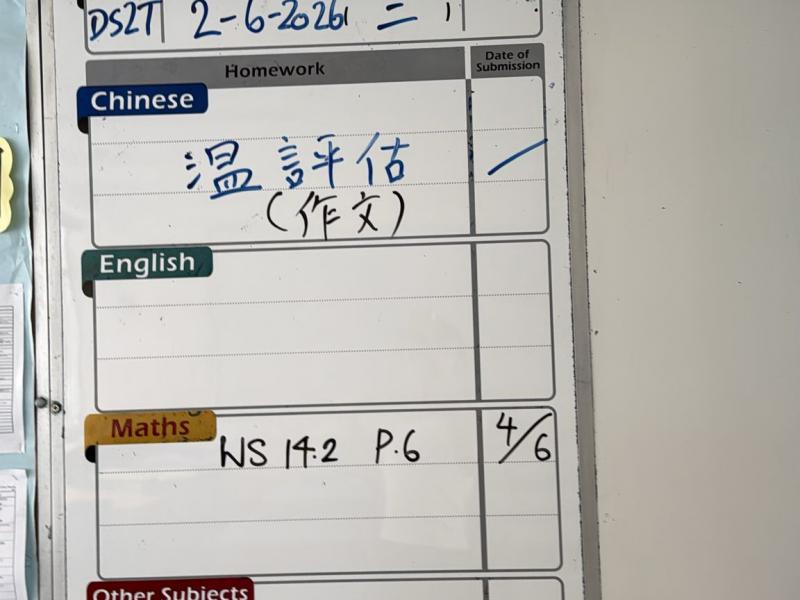 DS2T 2-6-2026 二
Homework
Date of Submission
Chinese
温評估
(作文)
English
Maths
WS 14.2 P.6 4/6
Other Subjects